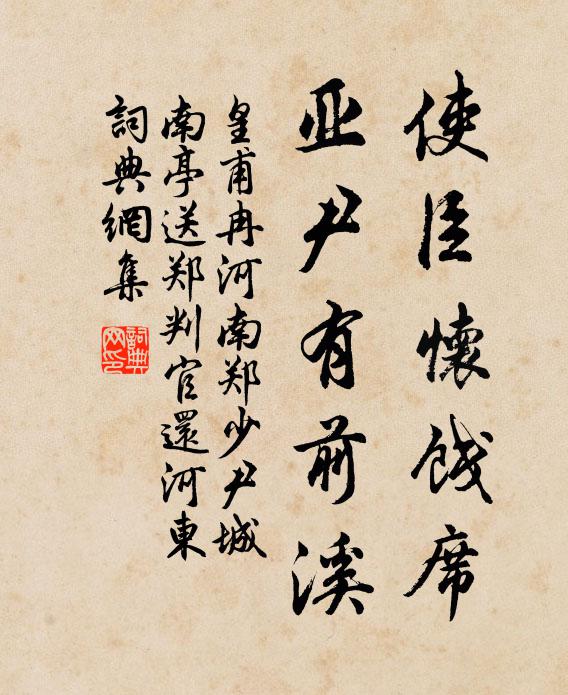 使臣懷餞席
亚尹有前溪
皇甫冉河南郑少尹城
南亭送郑判官還河東
詞典網集
詞典网印